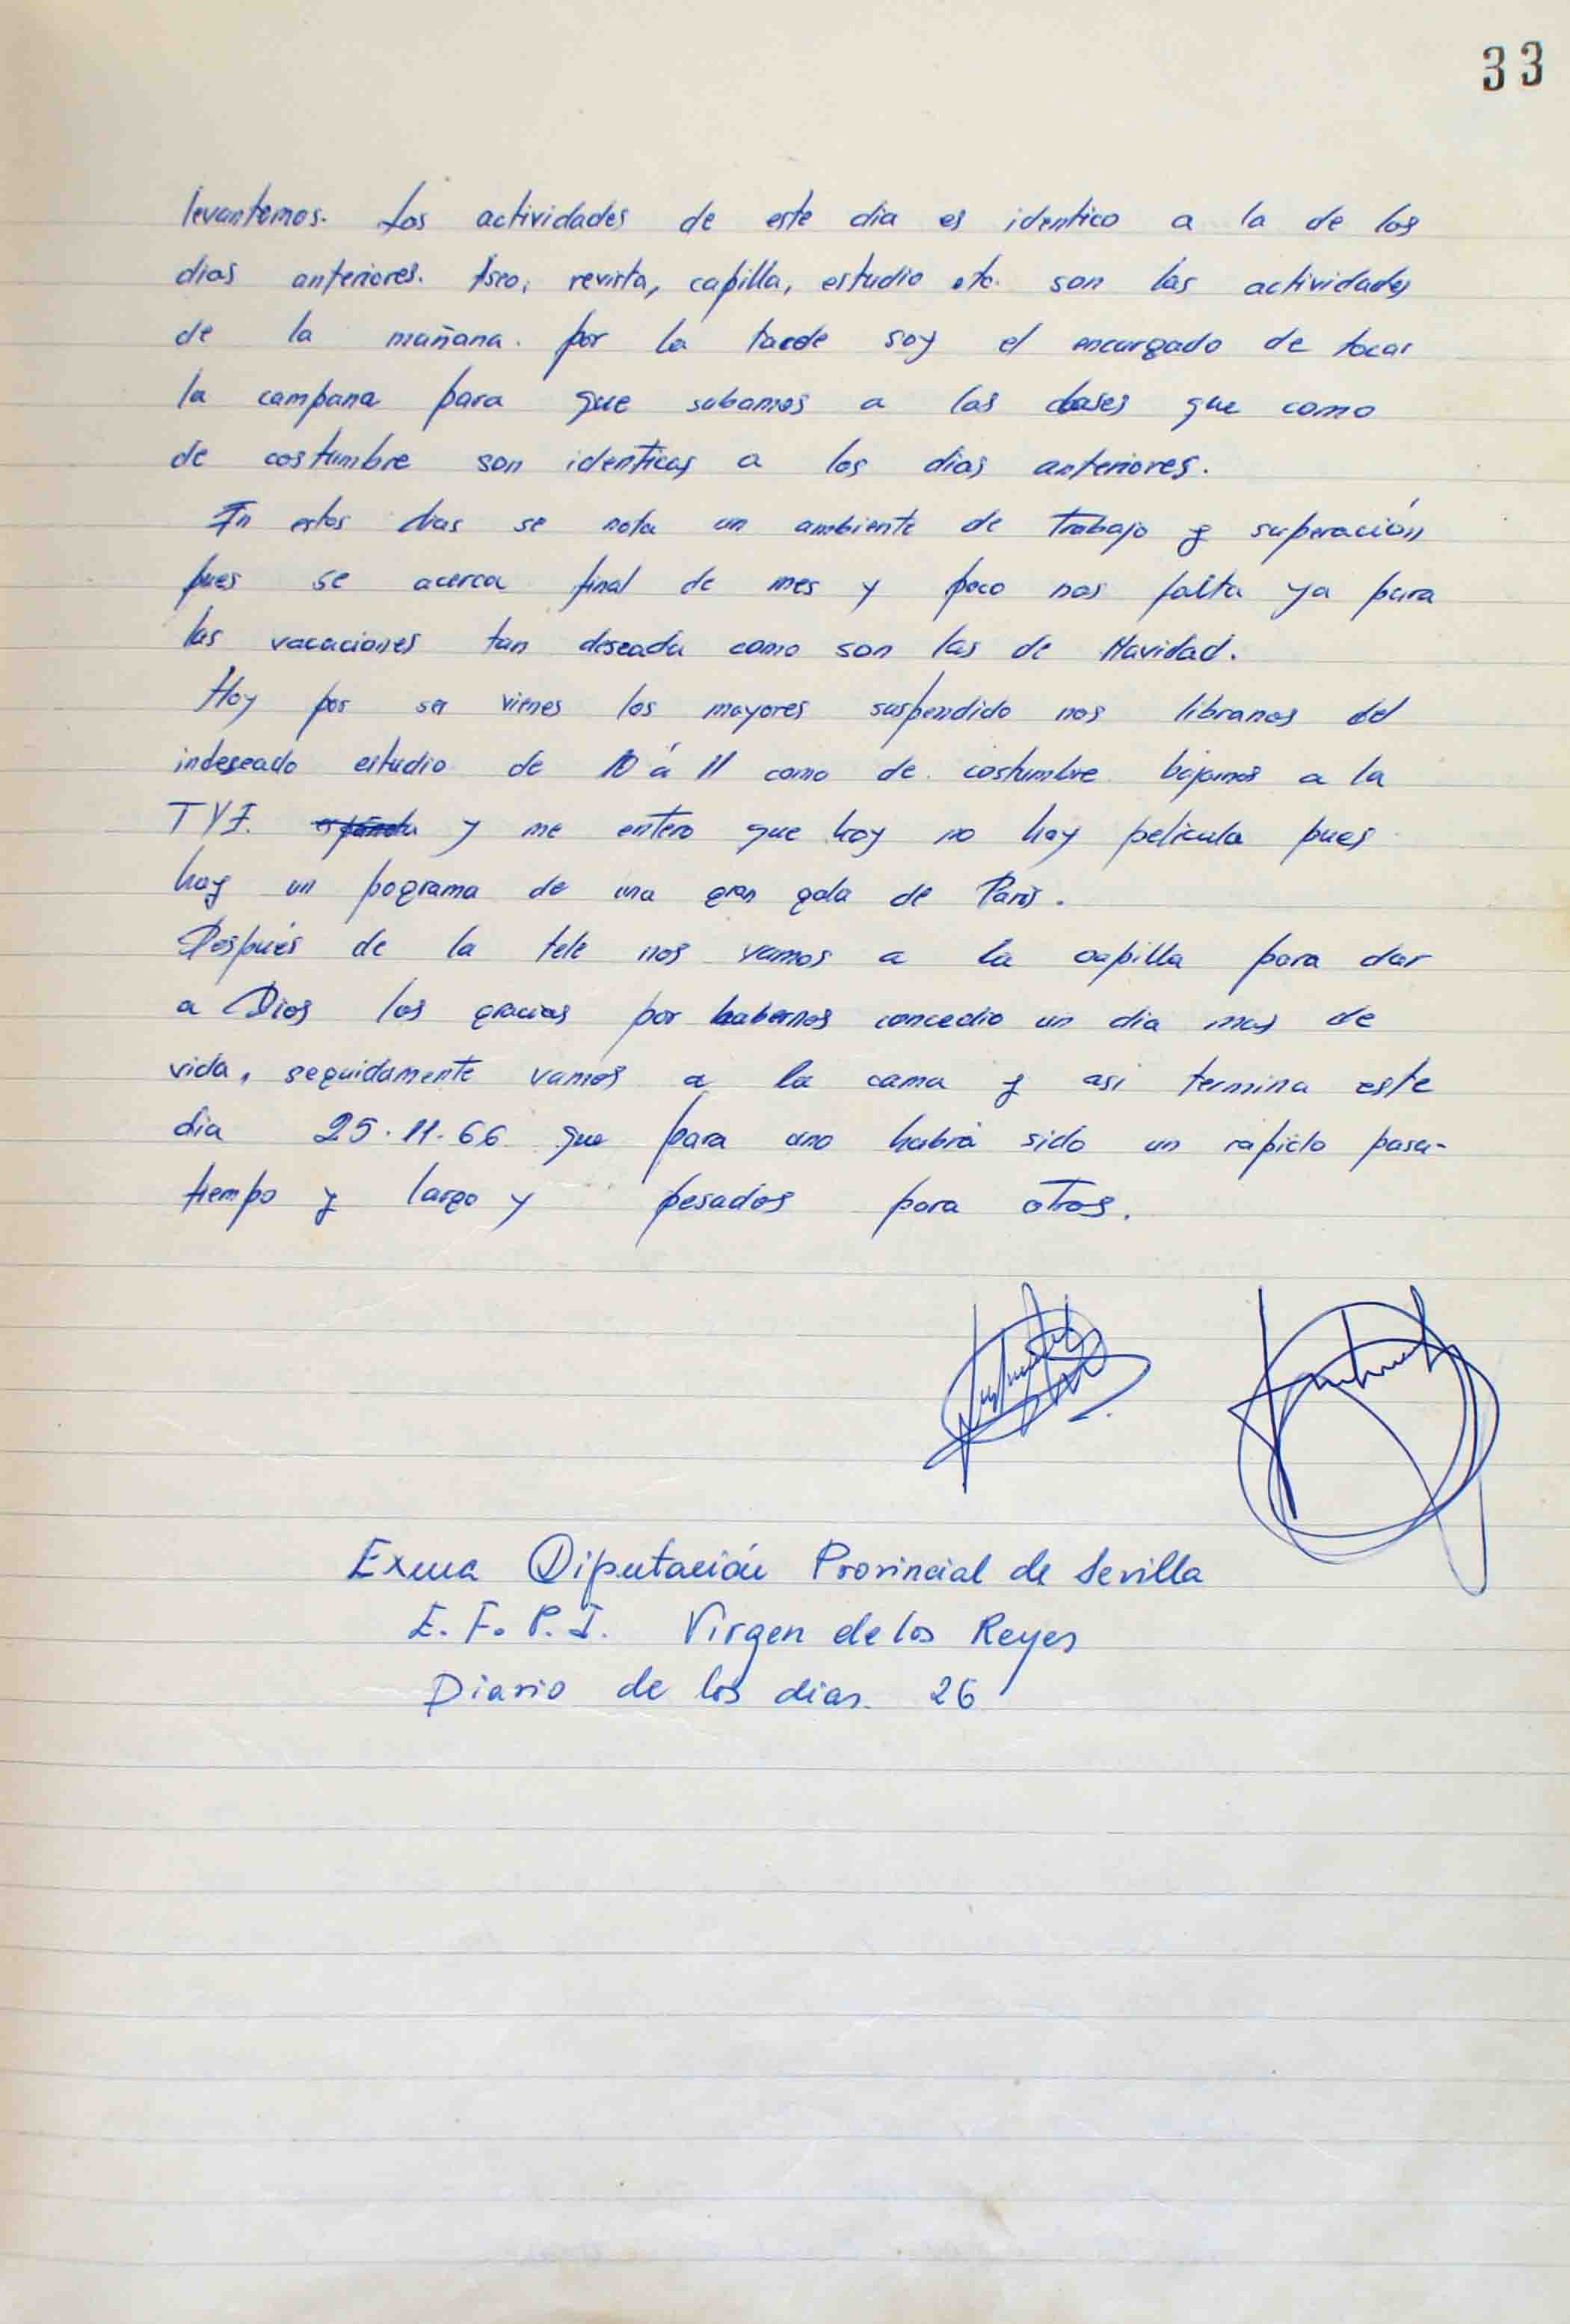 33
levantemos. Las actividades de este dia es identico a la de los
dias anteriores. Aseo, revista, capilla, estudio etc. son las actividades
de la mañana. por la tarde soy el encargado de tocar
la campana para que subamos a las clases que como
de costumbre son identicas a los dias anteriores.
En estos dias se nota un ambiente de trabajo y superación
pues se acerca final de mes y poco nos falta ya para
las vacaciones tan deseada como son las de Navidad.
Hoy por ser vienes los mayores suspendido nos libranos del
indeseado estudio de 10 á 11 como de costumbre bajamos a la
y me entero que hoy no hay pelicula pues
hay un pograma de una gran gala de Paris.
Después de la tele nos vamos a la capilla para dar
a Dios las gracias por habernos concedio un dia mas de
vida, seguidamente vamos a la cama y asi termina este
dia 25.11.66 que para uno habrá sido un rapido pasa-
tiempo y largo y pesados para otros.
Exma Diputación Provincial de Sevilla
E.F.P.I. Virgen de los Reyes
Diario de los dias. 26